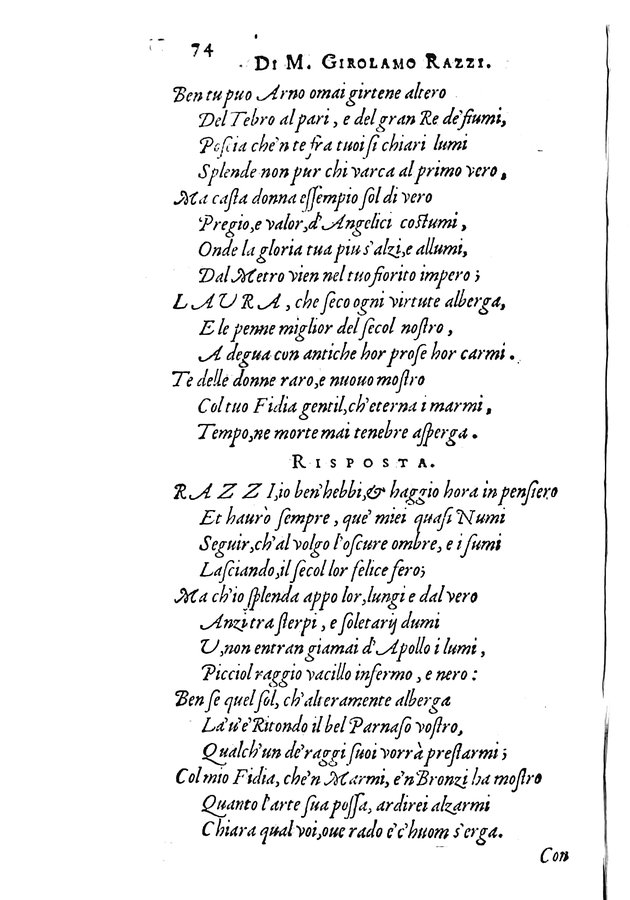 74
DI M. GIROLAMO RAZZI.
Ben tu puo Arno omai girtene altero
Del Tebro al pari, e del gran Re de' fiumi,
Poſcia che'n te fra tuoi ſi chiari lumi
Splende non pur chi varca al primo vero,
Ma caſta donna eſſempio ſol di vero
Pregio, e valor, d'Angelici coſtumi,
Onde la gloria tua piu s'alzi, e allumi,
Dal Metro vien nel tuo fiorito impero;
LAURA, che ſeco ogni virtute alberga,
E le penne miglior del ſecol noſtro,
A degua con antiche hor proſe hor carmi.
Te delle donne raro, e nuouo moſtro
Col tuo Fidia gentil, ch'eterna i marmi,
Tempo, ne morte mai tenebre aſperga.
RISPOSTA.
RAZZI, io ben'hebbi, & haggio hora in penſiero
Et haurò ſempre, que' miei quaſi Numi
Seguir, ch'al volgo l'oſcure ombre, e i fumi
Laſciando, il ſecol lor felice fero;
Ma ch'io ſplenda appo lor, lungi e dal vero
Anzi tra ſterpi, e ſoletarij dumi
U, non entran giamai d'Apollo i lumi,
Picciol raggio vacillo infermo, e nero:
Ben ſe quel ſol, ch'alteramente alberga
La'u'è Ritondo il bel Parnaſo voſtro,
Qualch'un de' raggi ſuoi vorrà preſtarmi;
Col mio Fidia, che'n Marmi, e'n Bronzi ha moſtro
Quanto l'arte ſua poſſa, ardirei alzarmi
Chiara qual voi, oue rado è c'huom s'erga.
Con